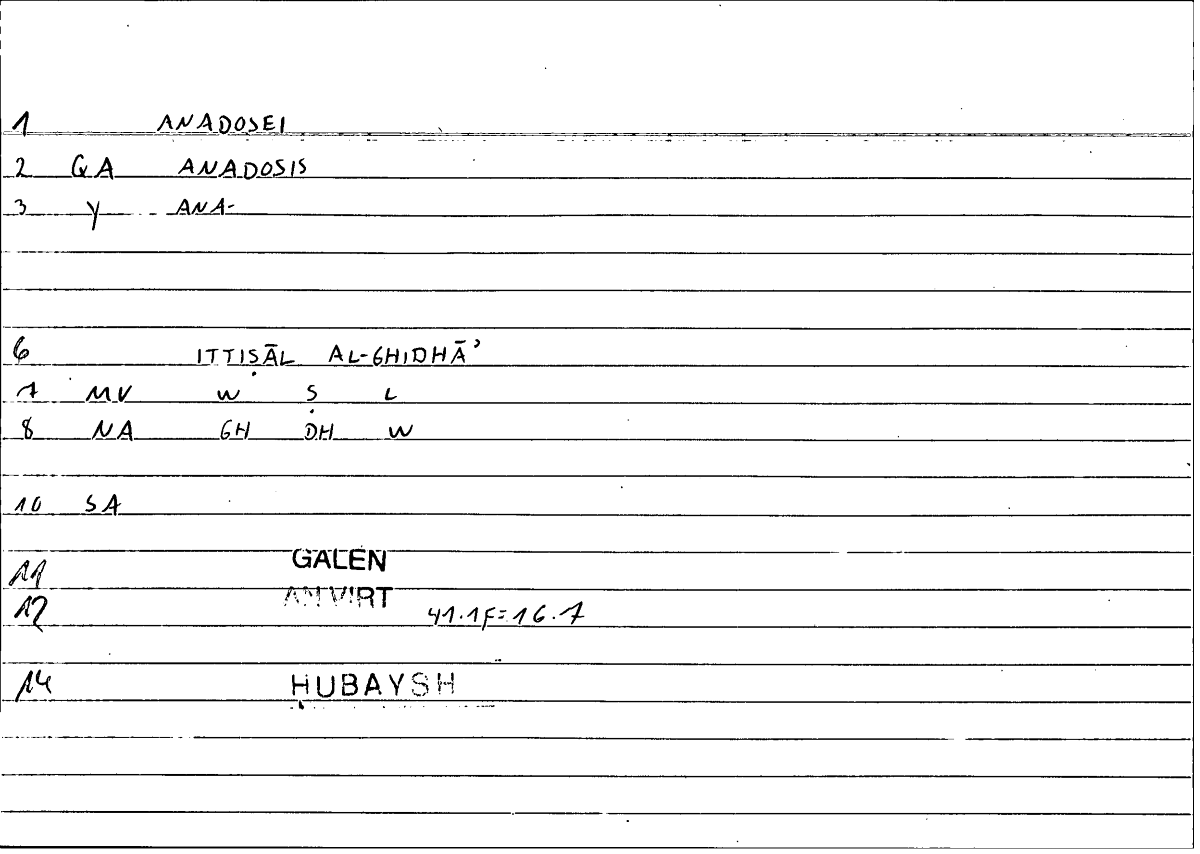 1 ANADOSEI
2 QA ANADOSIS
3 Y ANA-
6 ITTIṢĀL AL-GHIDHĀʾ
7 MV W Ṣ L
8 NA GH DH W
10 SA
11 GALEN
12 AN VIRT 41.1F=16.7
14 ḤUBAYSH